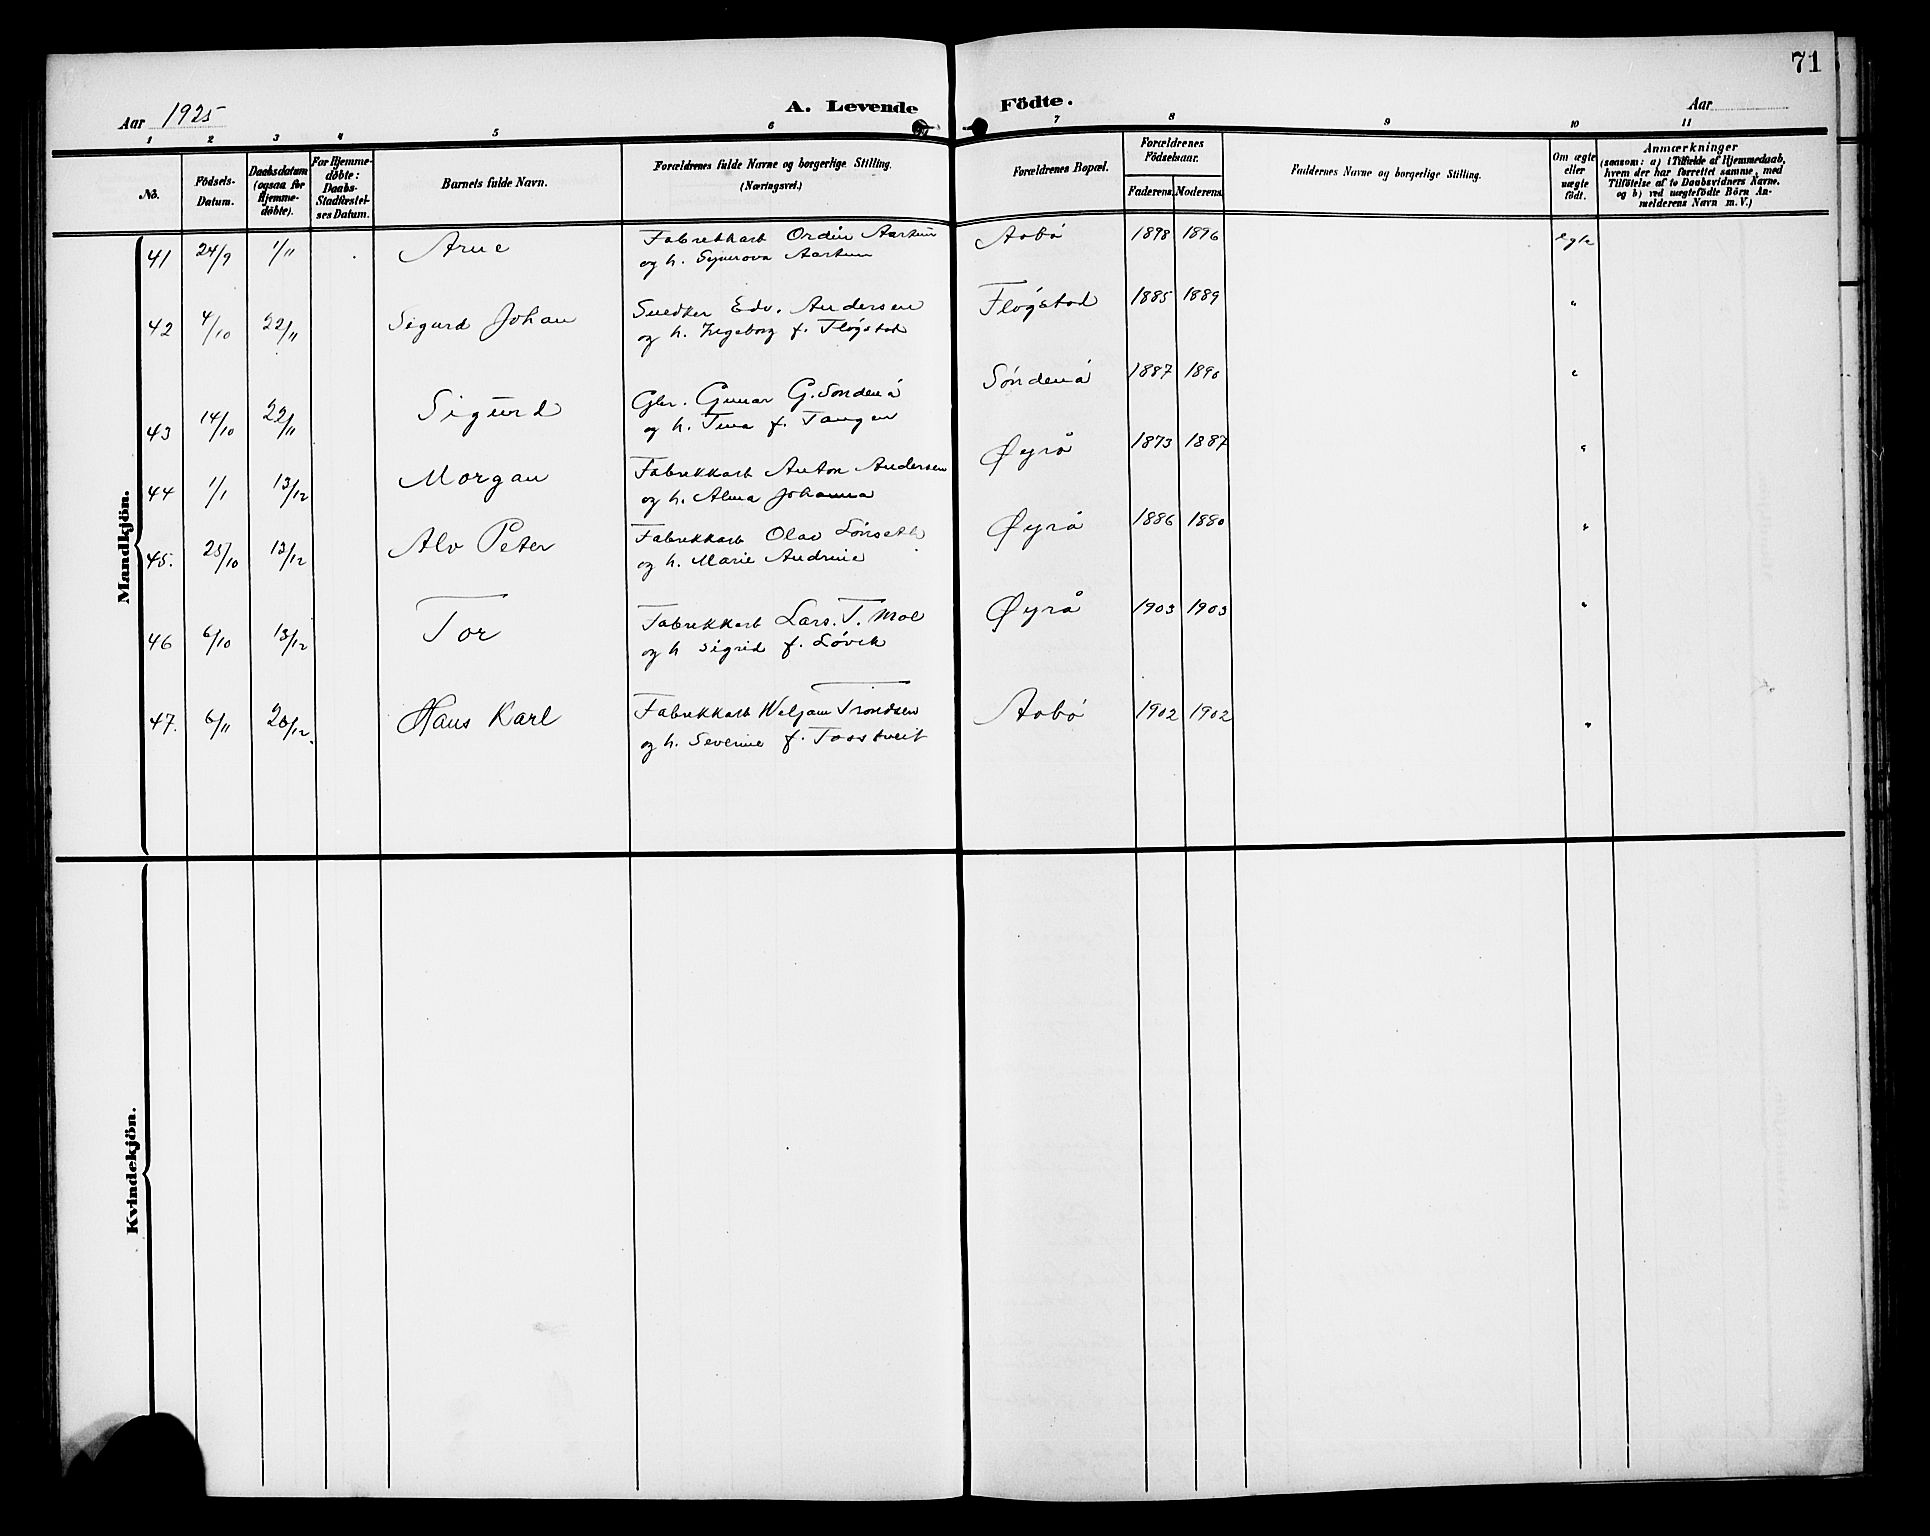 71
Aar 1925
A. Levende Födte.
Aar
1 2 3 4 5 6 7 8 9 10 11
No.
Födsels-Datum.
Daabsdatum (ogsaa for Hjemme-döbte).
For Hjemme-döbte: Daabs-Stadfæstel-ses Datum.
Barnets fulde Navn.
Forældrenes fulde Navne og borgerlige Stilling.
(Næringsvei.)
Forældrenes Bopæl.
Forældrenes Födselsaar.
Faderens. Moderens.
Faddernes Navne og borgerlige Stilling.
Om ægte eller uægte födt.
Anmærkninger
(saasom: a) i Tilfælde af Hjemmedaab,
hvem der har forrettet samme, med
Tilföielse af to Daabsvidners Navne.
og b) ved uægtefödte Börn An-
melderens Navn m. V.)
Mandkjön.
41 24/9 1/11 Arne Fabrikkarb Ordin Aartun Aobö 1898 1896 egte
og h. Synnova Aartun
42 4/10 22/11 Sigurd Johan Snedker Edv. Andersen Flógstad 1885 1889 "
og h. Ingeborg f. Flógstad
43 14/10 22/11 Sigurd Gbr. Gunar G. Sondenå Sóndenå 1887 1890 "
og h. Tina f. Tangen
44 1/1 13/12 Morgan Fabrikkarb Anton Andersen Øyrå 1873 1887 "
og h. Alma Johanna
45. 25/10 13/12 Alv Peter Fabrikkarb Olav Lónseth Øyrå 1886 1880 "
og h. Marie Andrine
46 6/10 13/12 Tor Fabrikkarb Lars. T. Moe Øyrå 1903 1903 "
og h Sigrid f. Lóvik
47. 6/11 20/12. Hans Karl Fabrikkarb Weljam Trondsen Aobó 1902 1902 "
og h. Severine f.
Kvindekjön.